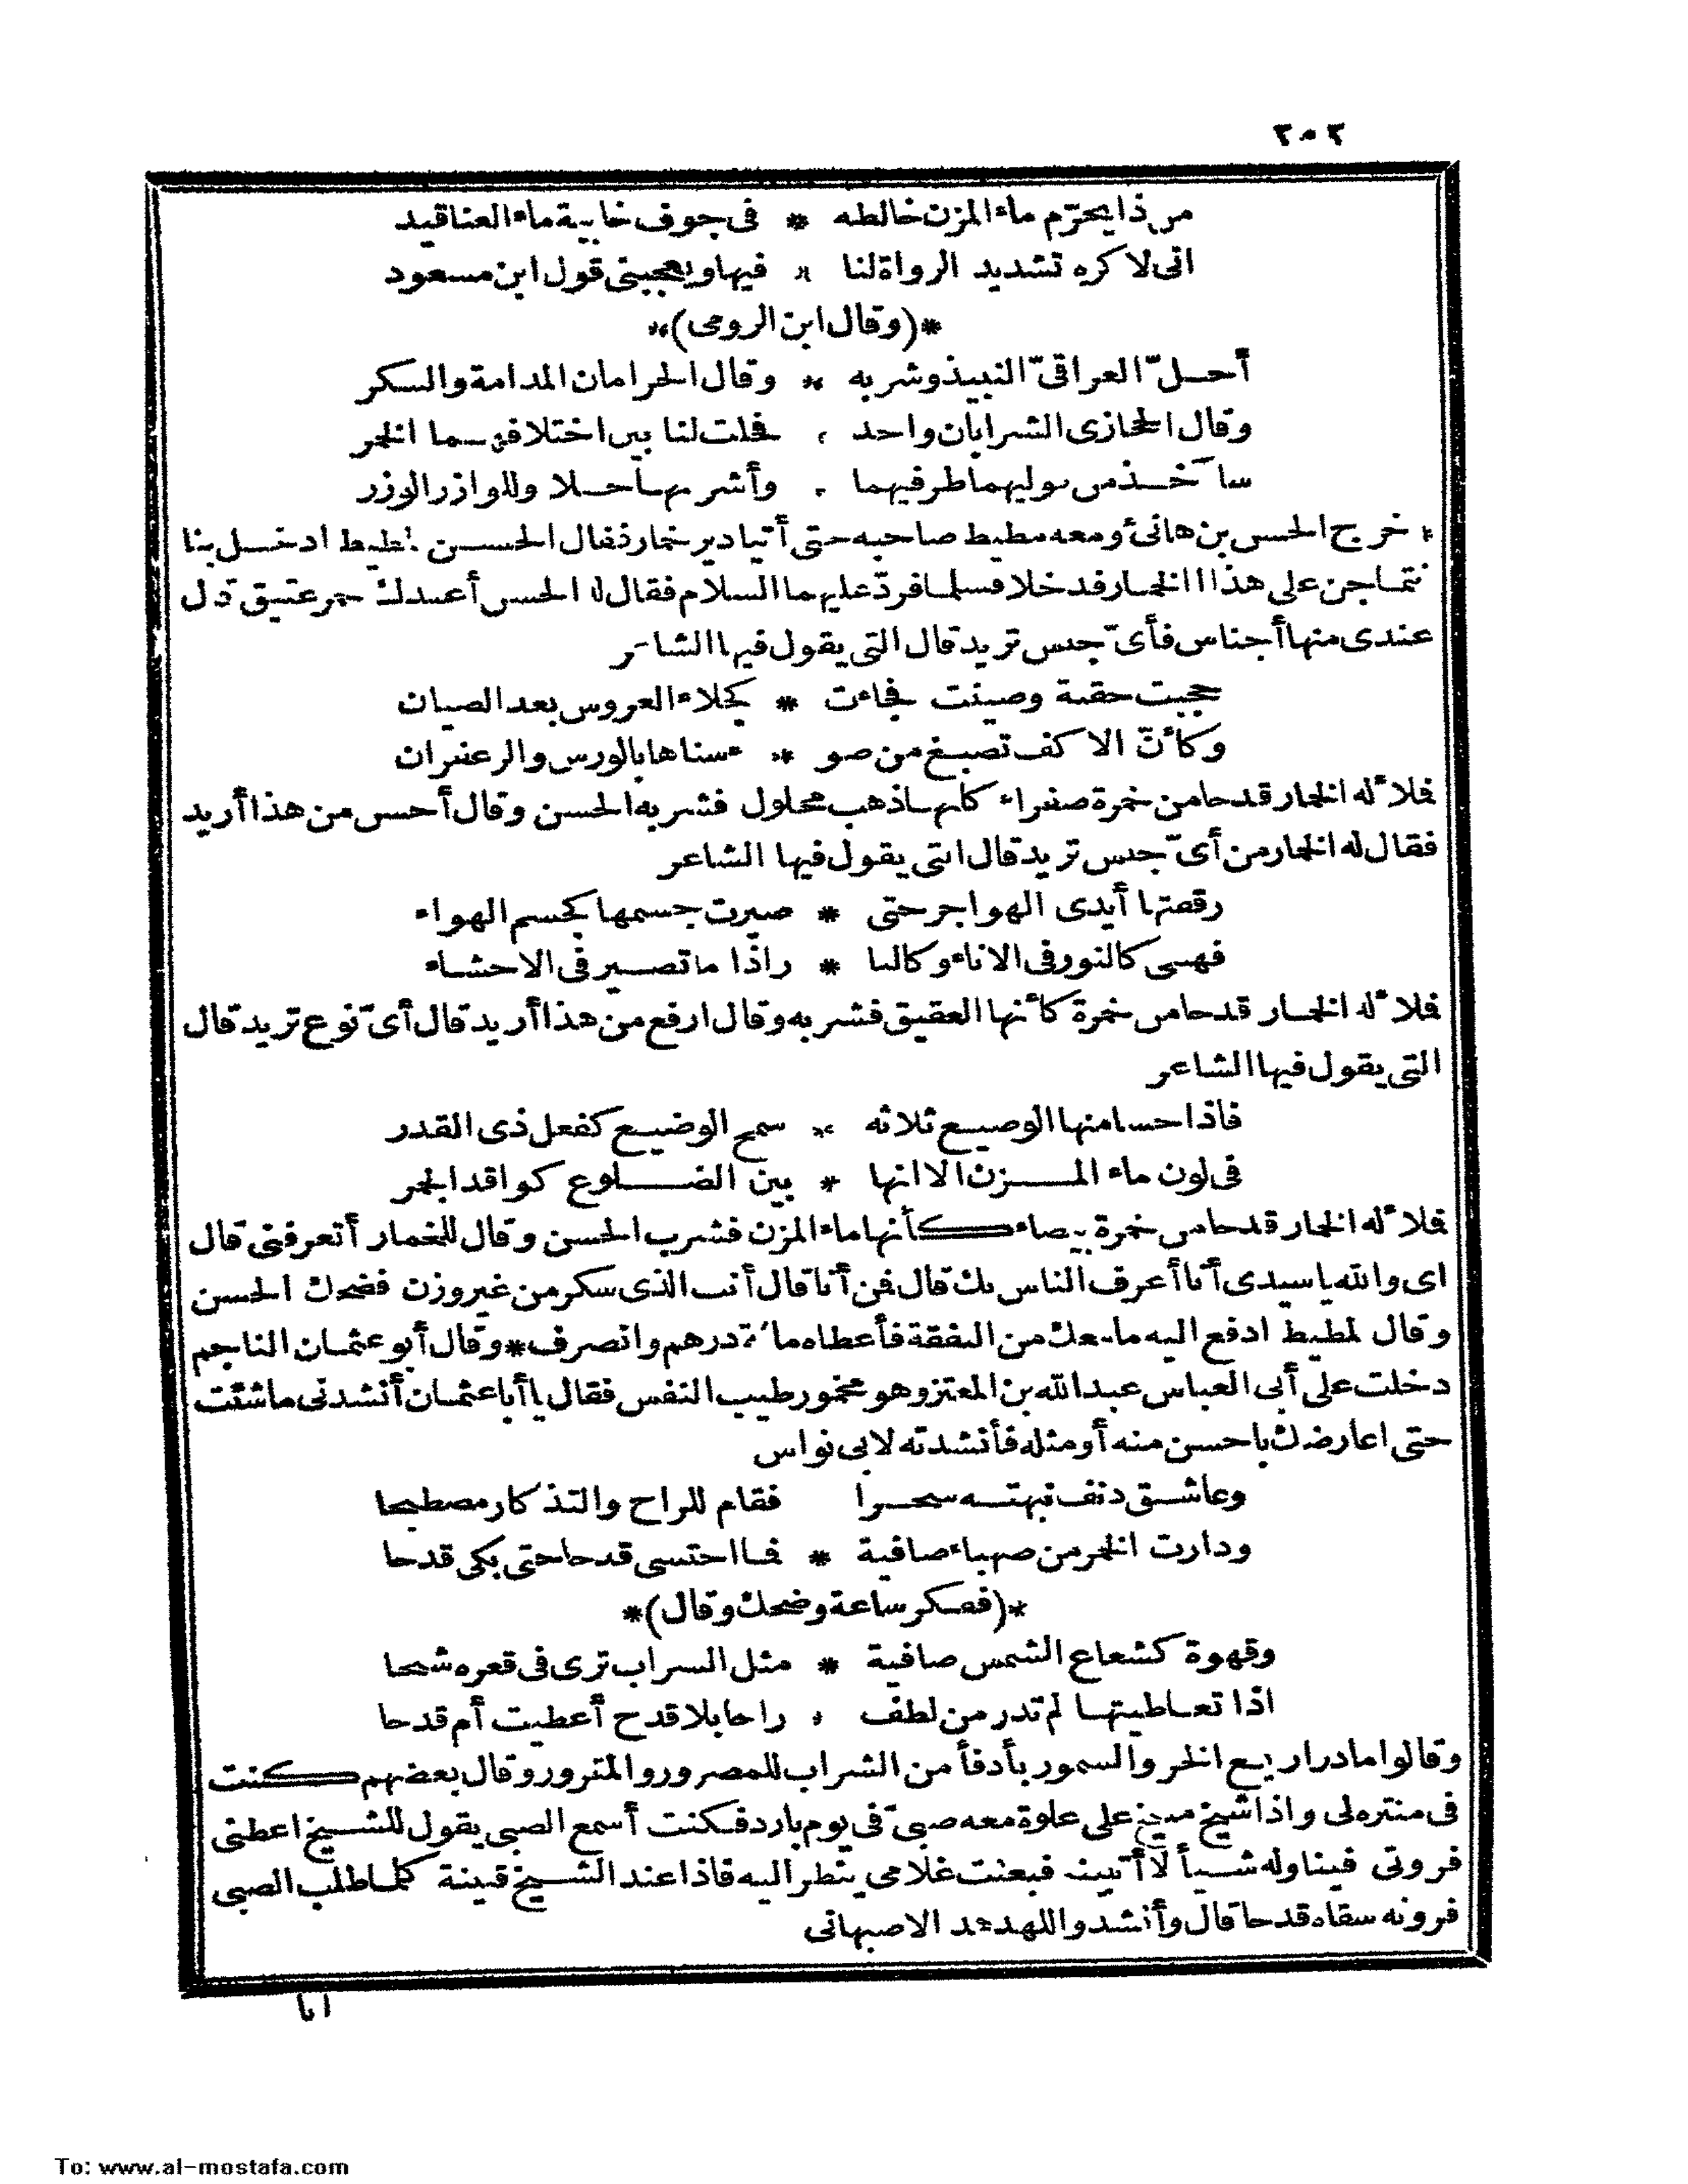 من ذا يحرّم ماء المزن خالطه * فى جوف خابية ماء العناقيد
انى لا كره تشديد الرواة لنا * فيها ويعجبنى قول ابن مسعود
*(وقال ابن الرومى)*
أحلّ العراقىّ النبيذ وشربه * وقال الحرامان المدامة والسكر
وقال الحجازى الشرابان واحد * فحلت لنا بين اختلافهما الخمر
سآخذ من قوليهما طرفيهما * وأشربها حلا وللوازر الوزر
* خرج الحسن بن هانئ ومعه مطيط صاحبه حتى أتيا دير خمار فقال الحسن لمطيط ادخل بنا
نتماجن على هذا الخمار فدخلا فسلما فردّ عليهما السلام فقال له الحسن أعندك خمر عتيق قال
عندى منها أجناس فأىّ جنس تريد قال التى يقول فيها الشاعر
حجبت حقبة وصينت فجاءت * كجلاء العروس بعد الصيان
وكأنّ الاكف تصبغ من ضو * ء سناها بالورس والزعفران
فملأ له الخمار قدحا من خمرة صفراء كأنها ذهب محلول فشربه الحسن وقال أحسن من هذا أريد
فقال له الخمار من أىّ جنس تريد قال التى يقول فيها الشاعر
رقصتها أيدى الهواجر حتى * صيرت جسمها كجسم الهواء
فهى كالنور فى الاناء وكالنا * ر اذا ما تصير فى الاحشاء
فملأ له الخمار قدحا من خمرة كأنها العقيق فشربه وقال ارفع من هذا أريد قال أىّ نوع تريد قال
التى يقول فيها الشاعر
فاذا حسا منها الوضيع ثلاثة * سمح الوضيع كفعل ذى القدر
فى لون ماء المزن الا انها * بين الضلوع كواقد الجمر
فملأ له الخمار قدحا من خمرة بيضاء كأنها ماء المزن فشرب الحسن وقال للخمار أتعرفنى قال
اى والله يا سيدى أنا أعرف الناس بك قال فمن أنا قال أنت الذى سكر من غير وزن فضحك الحسن
وقال لمطيط ادفع اليه ما معك من النفقة فأعطاه مائة درهم وانصرف * وقال أبو عثمان الناجم
دخلت على أبى العباس عبد الله بن المعتز وهو مخمور طيب النفس فقال يا أبا عثمان أنشدنى ما شئت
حتى اعارضك باحسن منه أو مثله فأنشدته لابى نواس
وعاشق دنف نبهته سحرا فقام للراح والتذكار مصطبحا
ودارت الخمر من صهباء صافية * فما احتسى قدحا حتى بكى قدحا
*(ففكر ساعة وضحك وقال)*
وقهوة كشعاع الشمس صافية * مثل السراب ترى فى قعره شبحا
اذا تعاطيتها لم تدر من لطف * راحا بلا قدح أعطيت أم قدحا
وقالوا ما دراريع الخز والسمور بأدفأ من الشراب للمصرور والمقرور وقال بعضهم كنت
فى منتزه لى واذا شيخ على علاوة معه صبىّ فى يوم بارد فكنت أسمع الصبى يقول للشيخ اعطنى
فروتى فيناوله شيأ لا أتبينه فبعثت غلامى ينظر اليه فاذا عند الشيخ قنينة كلما طلب الصبى
فروته سقاه قدحا قال وأنشدوا الاصبهانى
انا
To: www.al-mostafa.com